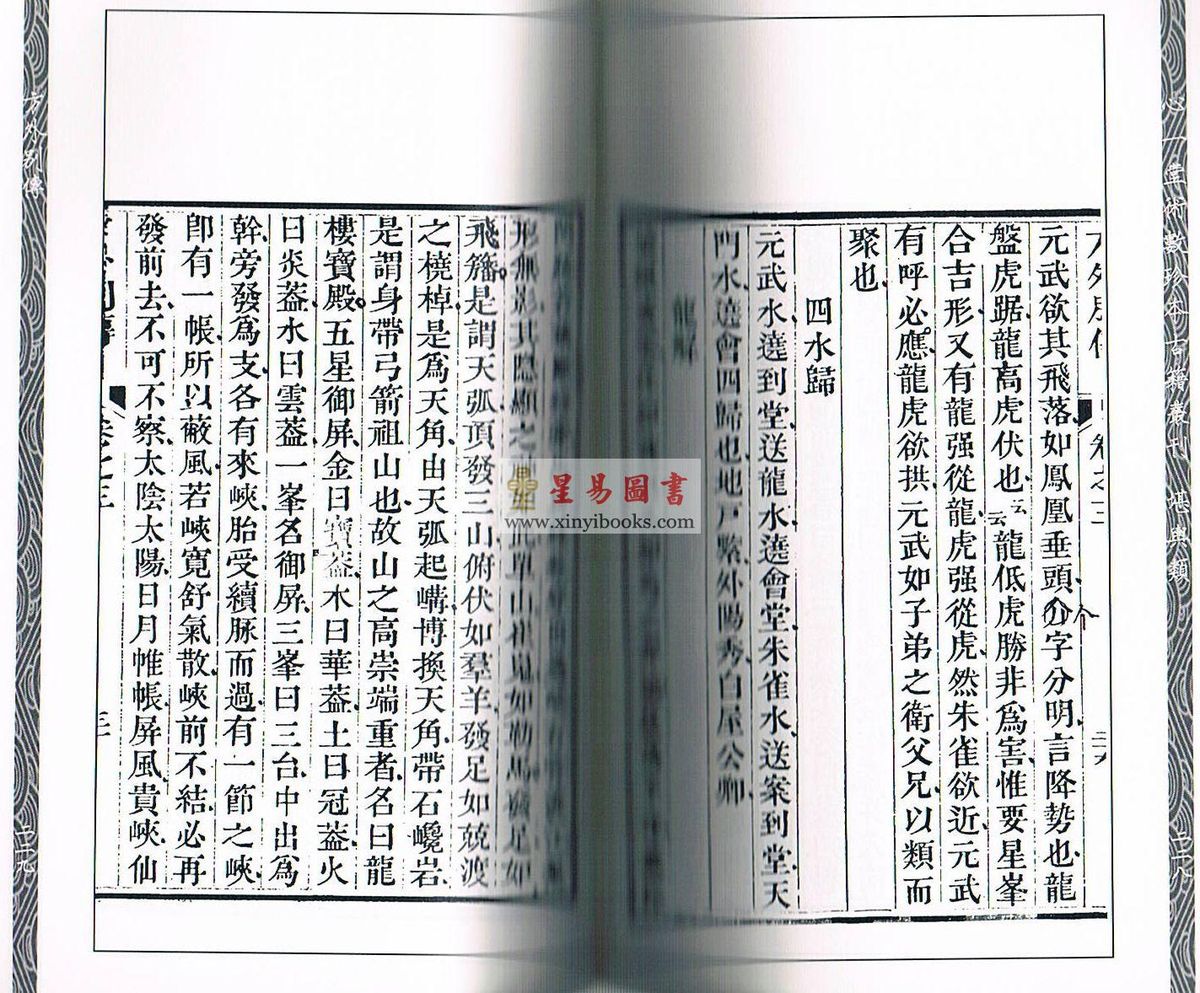 心一堂術數珍本古籍叢刊 堪輿類
二六
元武欲其飛落如鳳凰垂頭介字分明言降勢也龍
介
盤虎踞龍高虎伏也云龍低虎勝非為害惟要星峯
云
合吉形又有龍强從龍虎强從虎然朱雀欲近元武
有呼必應龍虎欲拱元武如子弟之衛父兄以類而
聚也
四水歸
元武水遶到堂送龍水遶會堂朱雀水送案到堂天
門水遶會四歸也地戶緊外陽秀白屋公卿
龍解
形無影其隱顯之 單山崔嵬如勒馬 足如
飛旛是謂天弧頂發三山俯伏如羣羊發足如競渡
之橈棹是爲天角由天弧起嶙博換天角帶石巉岩
是謂身帶弓箭祖山也故山之高崇端重者名曰龍
樓寶殿五星御屏金曰寶葢木曰華葢土曰冠葢火
曰炎葢水曰雲葢一峯名御屏三峯曰三台中出爲
幹旁發爲支各有來峽胎受續脉而過有一節之峽
卽有一帳所以蔽風若峽寬舒氣散峽前不結必再
發前去不可不察太陰太陽日月帷帳屏風貴峽仙
方外別傳
星易圖書
www.xinyibooks.com